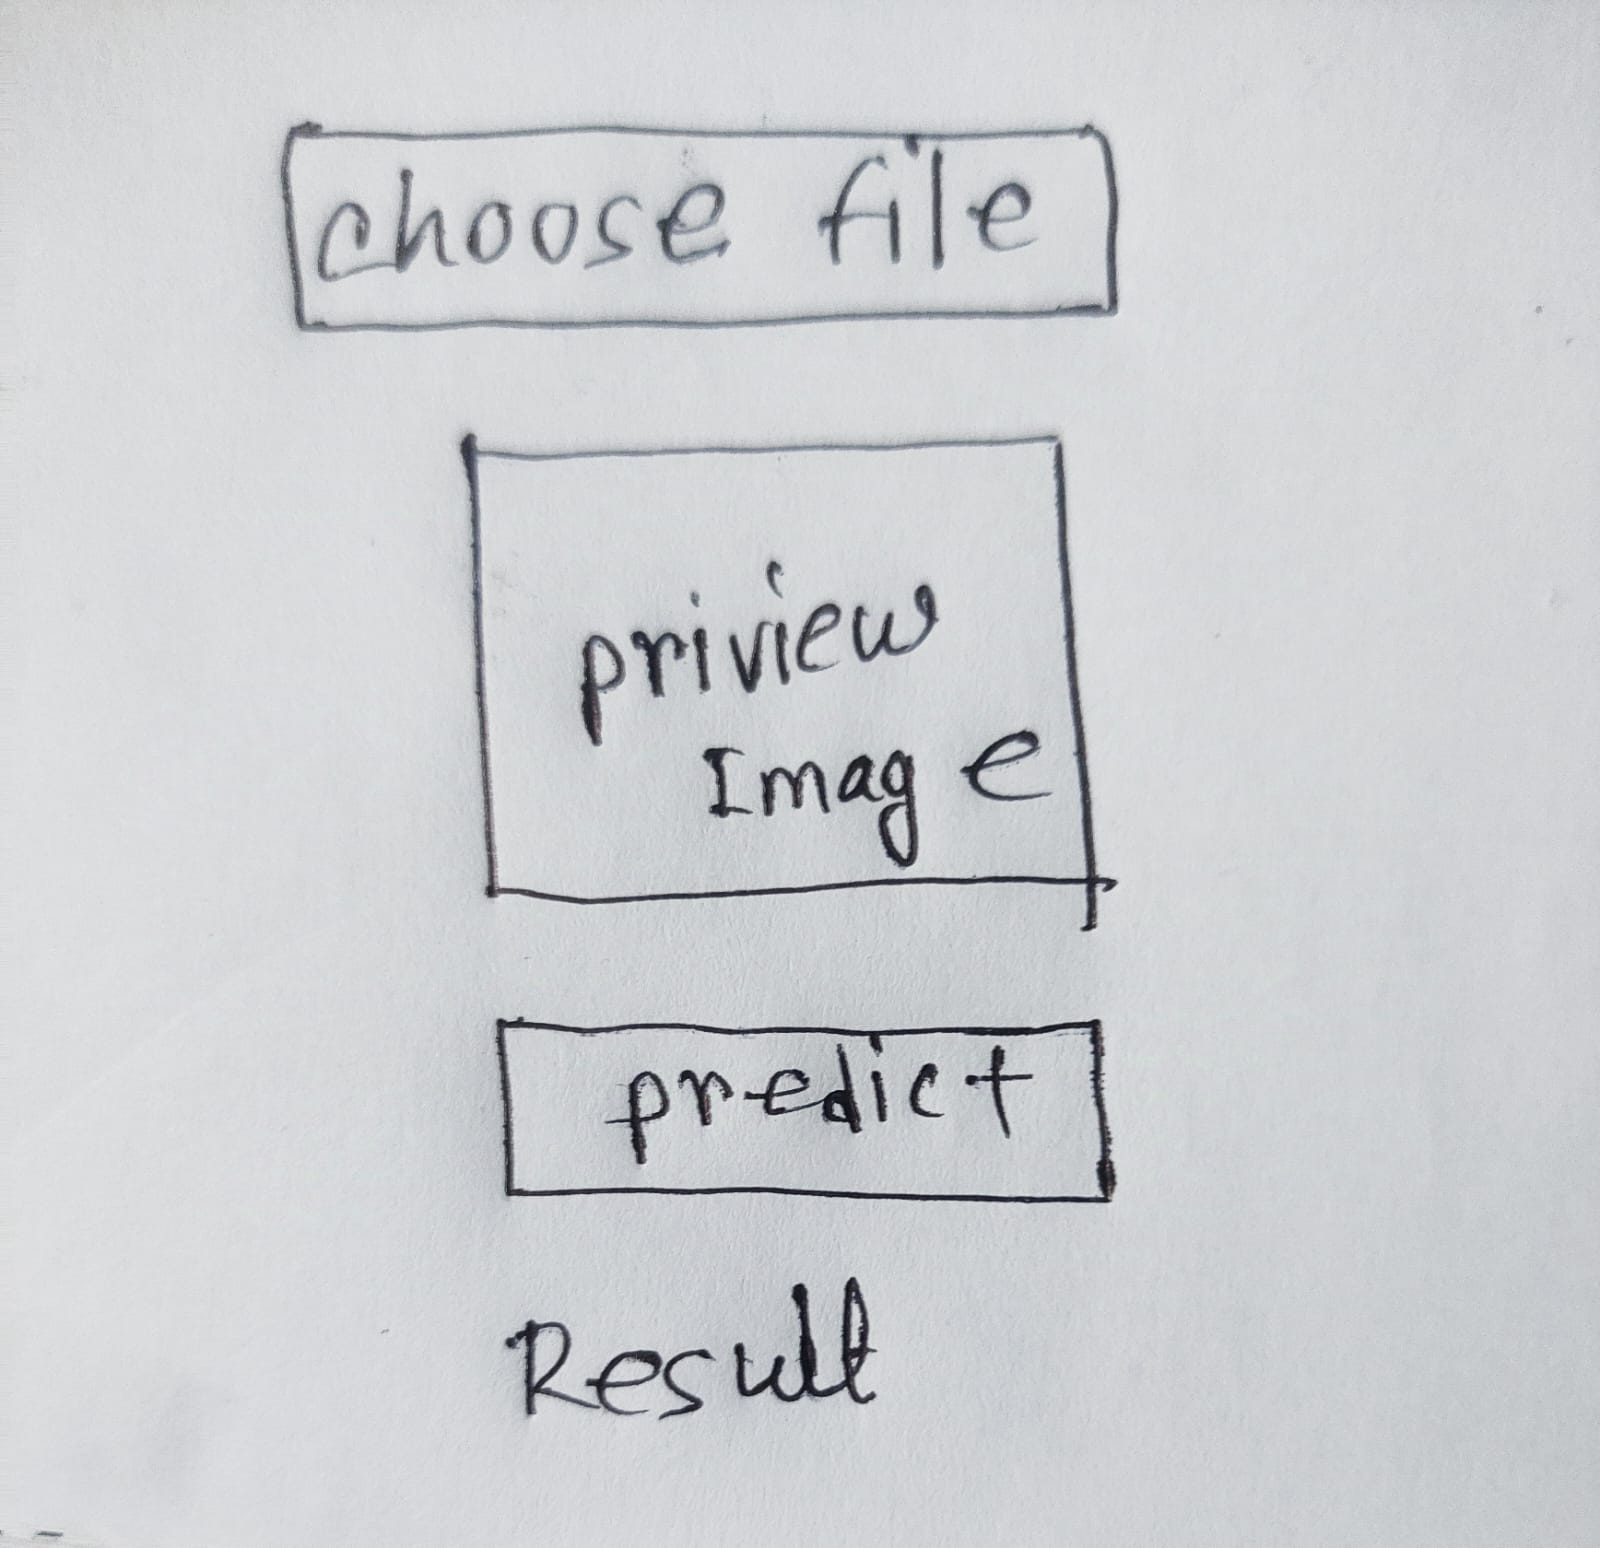 choose file
priview
Image
predict
Result